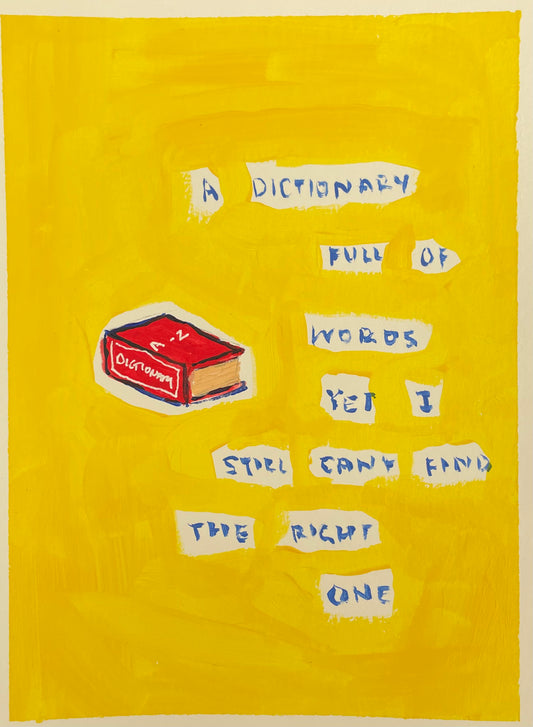 A DICTIONARY
FULL OF
WORDS
YET I
STILL CAN'T FIND
THE RIGHT
ONE
A-Z
DICTIONARY